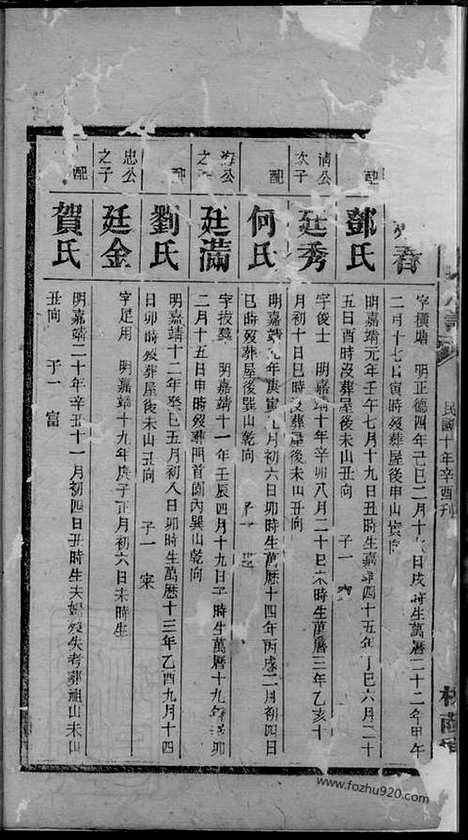 春
字橫塘 明正德四年己巳二月十日戌時生萬曆二十二年甲午
二月十七日寅時歿葬屋後申山寅向
配
鄧氏
明嘉靖元年壬午七月十九日丑時生嘉靖四十五年丁巳六月二十
五日酉時歿葬屋後未山丑向 子一
清公
次子
廷秀
字俊士 明嘉靖十年辛卯八月二十日巳未時生萬曆三年乙亥十
月初十日巳時歿葬屋後未山丑向
配
何氏
明嘉靖九年庚寅九月初六日卯時生萬曆十四年丙戌二月初四日
巳時歿葬屋後巽山乾向 子一
海公
之子
廷滿
字拔羲 明嘉靖十一年壬辰四月十九日子時生萬曆十九年辛卯
二月十五日申時歿葬門首園內巽山乾向
配
劉氏
明嘉靖十二年癸巳五月初八日卯時生萬曆十三年乙酉九月十四
日卯時歿葬屋後未山丑向 子一 宋
忠公
之子
廷金
字足用 明嘉靖十九年庚子正月初六日未時生
配
賀氏
明嘉靖二十年辛丑十一月初四日丑時生夫婦歿失考葬祖山未山
丑向 子一 富
民國十年辛酉刊
www.fozhu920.com